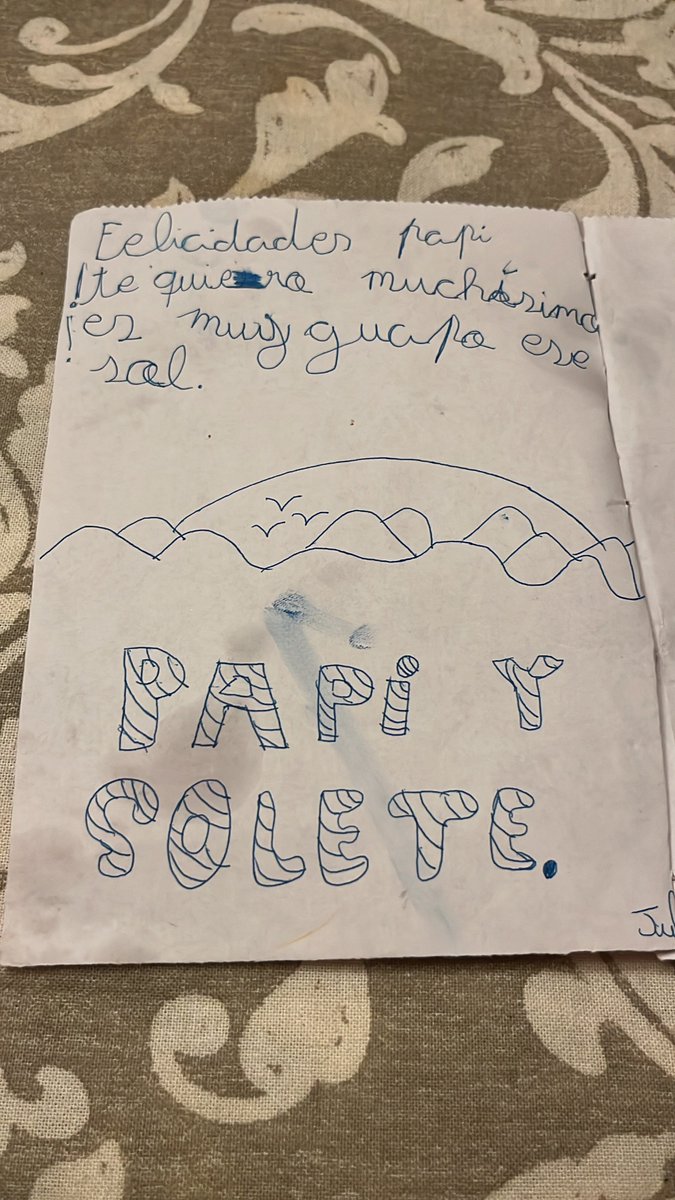 Felicidades papi
!te quiero muchísimo
¡es muy guapo ese
sol.
PAPi Y
SOLETE.
Jul